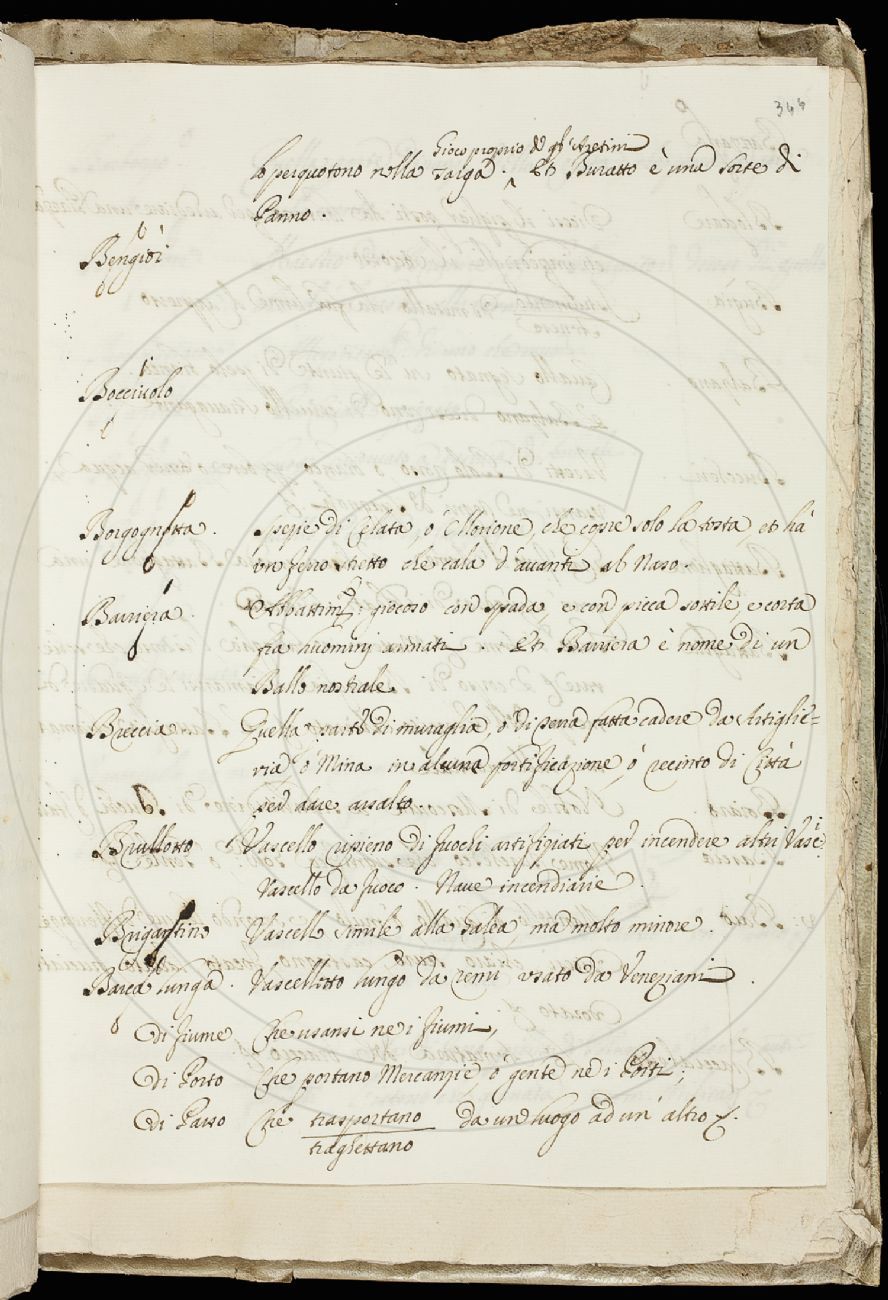 344
Gioco proprio de gl' Aretini
lo perquotono nella Targa. ^ Et Buratto è una sorte di
Panno.
Bengiòi
Bocciuolo
Borgognotta. spezie di Celata, ò Morione, che copre solo la testa, et hà
un ferro stretto che cala d'avanti al Naso.
Barriera. Abbattim.to giocoso con spada, e con picca sottile e corta
fra huominj armati. Et Barriera è nome di un
Ballo nostrale.
Breccia Quella parte di muraglia, ò di terra fatta cadere da Artiglie=
ria, ò Mina in alcuna fortificazione, ò recinto di Città
per dare assalto.
Brullotto Vascello ripieno di fuochi artifiziati per incendere altri Vasc.i
Vascello da fuoco. Nave incendiarie.
Brigantino Vascell simile alla Galea, ma molto minore.
Barca lunga. Vascelletto lungo da remi usato da Veneziani.
di fiume Che usansi ne i fiumi,
di Porto Che portano Mercanzie, ò gente ne i Porti;
di Passo Che trasportano da un luogo ad un' altro
traghettano